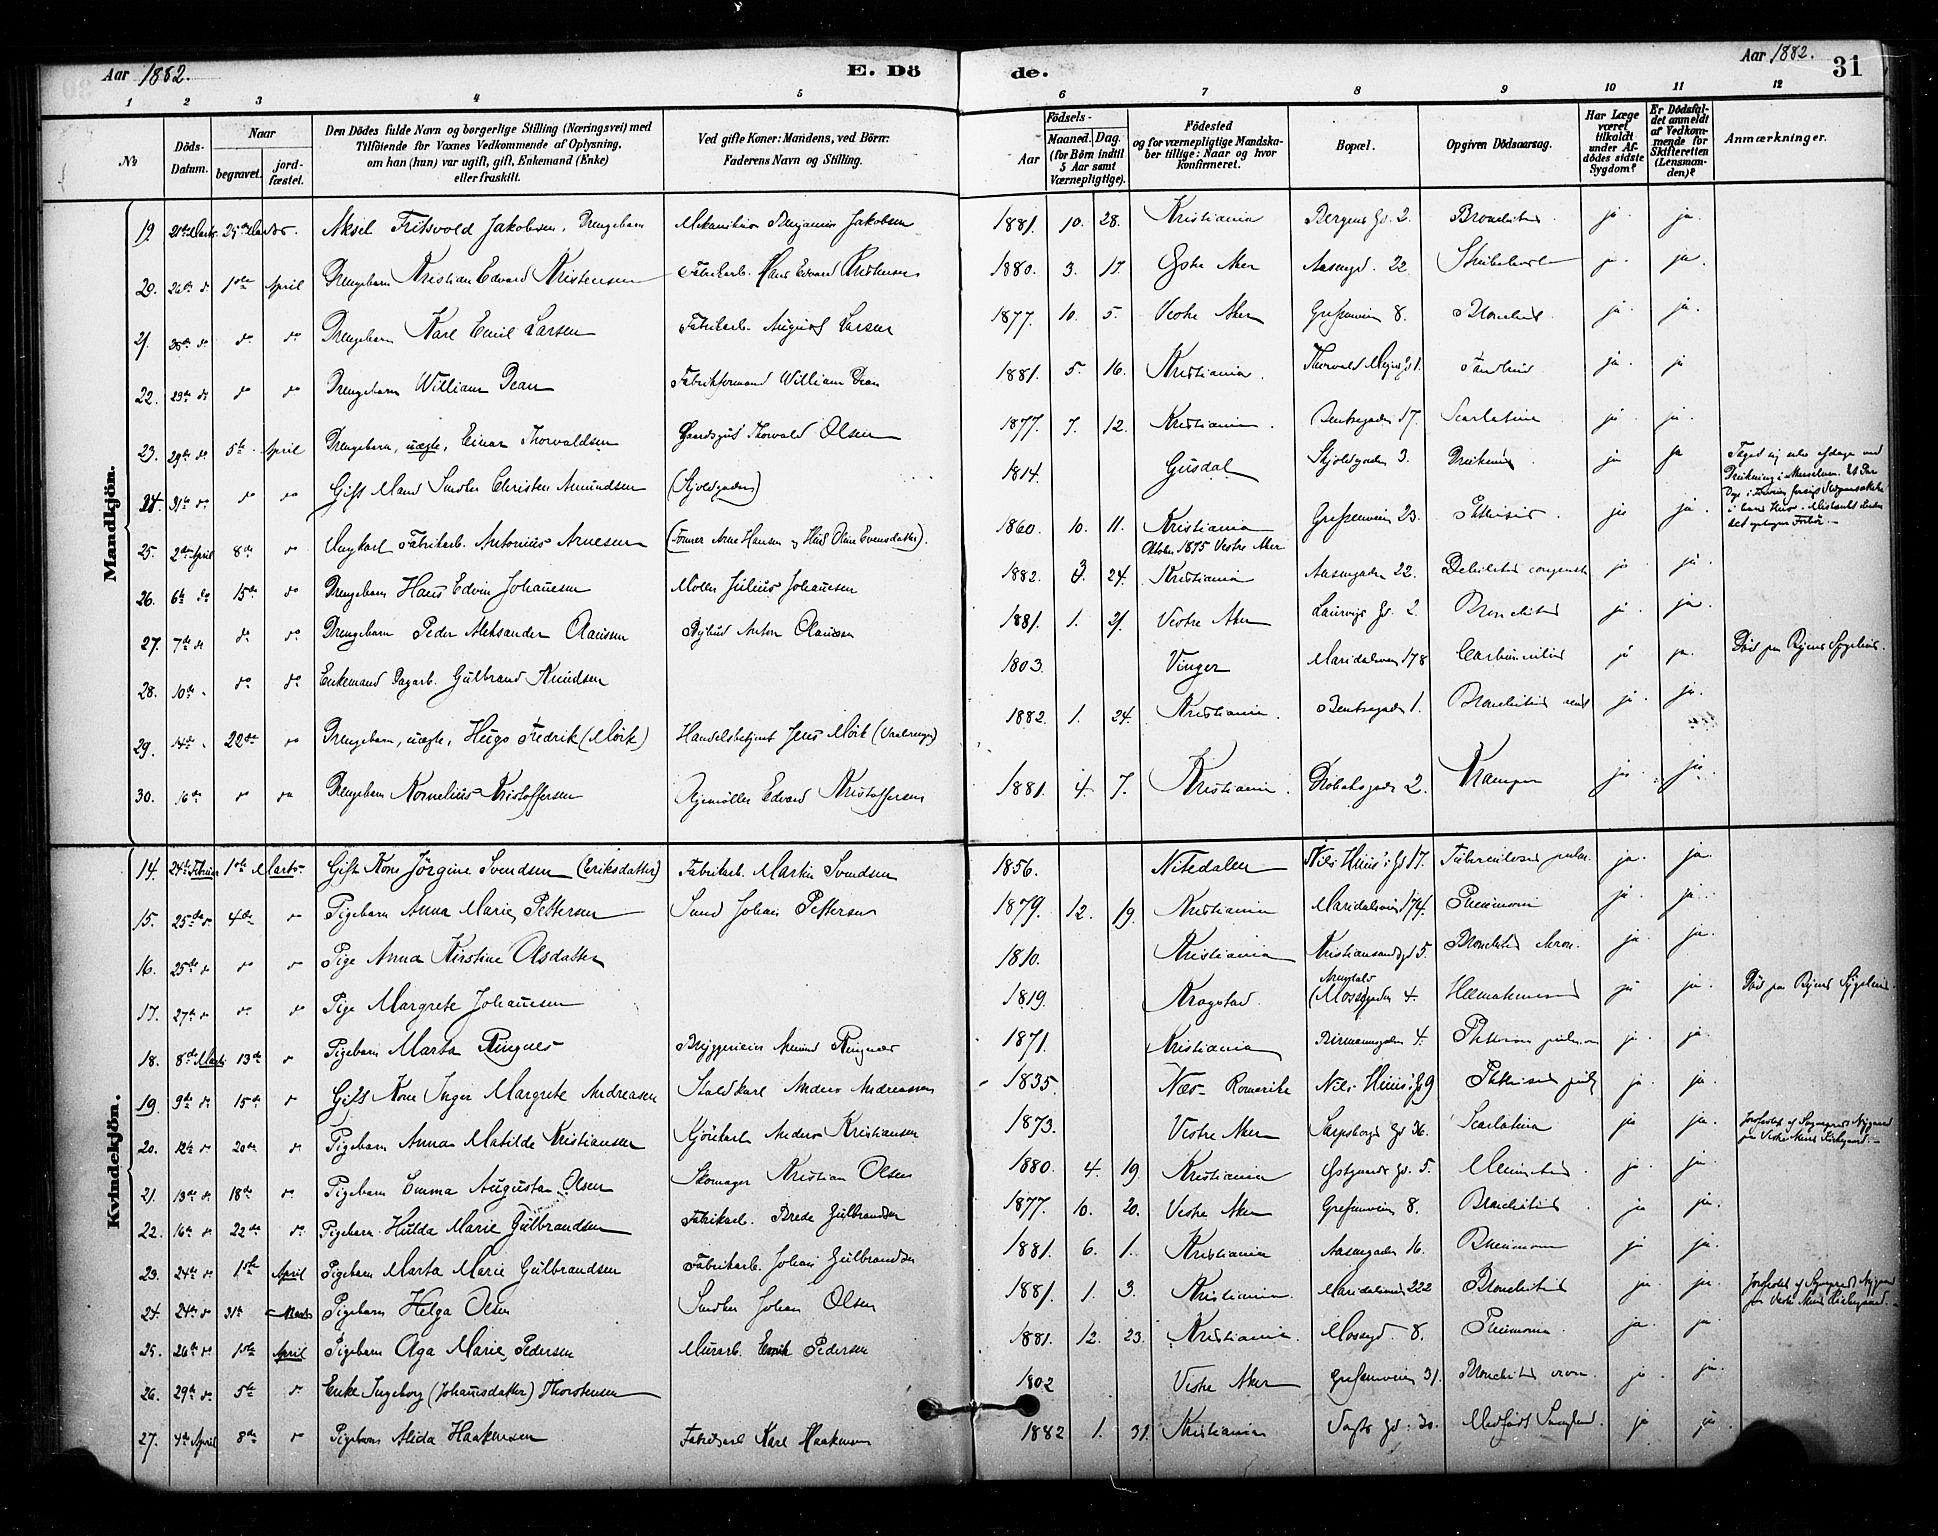 Aar 1882. E. Dö de. Aar 1882. 31
1 2 3 4 5 6 7 8 9 10 11 12
No
Döds-Datum.
Naar begravet. jordfæstet.
Den Dödes fulde Navn og borgerlige Stilling (Næringsvei) med Tilföiende for Voxnes Vedkommende af Oplysning, om han (hun) var ugift, gift, Enkemand (Enke) eller fraskilt.
Ved gifte Koner: Mandens, ved Börn: Faderens Navn og Stilling.
Födsels- Aar Maaned. Dag. (for Börn indtil 5 Aar samt Værnepligtige).
Födested og for værnepligtige Mandskaber tillige: Naar og hvor konfirmeret.
Bopæl.
Opgiven Dödsaarsag.
Har Læge været tilkaldt under Afdödes sidste Sygdom?
Er Dödsfaldet anmeldt af Vedkommende for Skifteretten (Lensmanden)?
Anmærkninger.
Mandkjön.
19. Aksel Fritsvold Jakobsen, Drengebarn Benjamin Jakobsen 1881. 10. 28. Kristiania Bergens Gd. 2. ja. ja.
20. 26de do 1ste April Drengebarn Kristian Edvard Kristensen Fabrikarb. Hans Edvard Kristensen 1880. 3. 17. Östre Aker Aasengd. 22 ja.
21. do do Drengebarn Karl Emil Larsen Fabrikarb. August Larsen 1877. 10. 5. Vestre Aker Grefsenveien 8. Bronchitis ja. ja.
22. 29de do do do Drengebarn William Dean Fabrikformand William Dean 1881. 5. 16. Kristiania. Thorvald Meyers gd 1. ja. ja
23. 29de do 5te April Drengebarn, uægte, Einar Thorvaldsen Gaardsgut Thorvald Olsen 1877. 7. 12. Kristiania. Bentsegaden 17. Scarlatina ja ja.
24. 31te do do do Gift Mand Smeden Christen Amundsen (Skjoldgaden) 1814. Gusdal Skjoldgaden 3. ja ja
25. 2den April 8de do Ungkarl Fabrikarb. Antonius Arnesen (Tömmer Arne Hansen og Hus Oline Evensdatter). 1860. 10. 11. Kristiania Oktober 1875 Vestre Aker Grefsenveien 23. Phthisis ja ja.
26. 6te do 15de do Drengebarn Hans Edvin Johansen Möller Julius Johansen 1882. 3. 24. Kristiania Aasengaden 22. Debilitas congenita ja ja.
27. 7de do do do Drengebarn Peder Aleksander Olausen Bybud Anton Olausen 1881. 1. 21. Vestre Aker Laurvigs Gd. 2 Bronchitis ja. ja.
28. 10de do do Enkemand Dagarb. Gulbrand Knudsen 1803. Vinger Maridalsveien 178 ja ja. Död paa Byens Sygehus.
29. 14de 22de do Drengebarn, uægte, Hugo Fredrik (Mörk) Handelsbetjent Jens Mörk (Vaalerengen) 1882. 1. 24. Kristiania. Bentsegaden 1. ja. ja.
30. 16de do do Drengebarn Kornelius Kristoffersen Edvard Kristoffersen 1881. 4. 7. Kristiania. Drøbaksgaden 2. Kramper ja. ja.
Kvindekjön.
14. 24de Februar 1ste Marts Gift Kone Jörgine Svendsen (Eriksdatter) Fabrikarb. Martin Svendsen 1856. Nitedalen Nils Huus' Gd 17. ja. ja.
15. 25de do 4de do Pigebarn Anna Marie Pettersen Smed Johan Pettersen 1879. 12. 19. Kristiania Maridalsveien 174. Pneumoni ja. ja.
16. 25de do do do Pige Anna Kirstine Olsdatter 1810. Kristiania Kristiansands gd 5. Bronchitis chron. ja. ja.
17. 27de do do do Pige Margrete Johansen 1819. Kragstad Arendals (Mossegaden 4. ja ja. Död paa Byens Sygehus.
18. 8de Marts 13de do Pigebarn Marta Ringnes Bryggerieier Amund Ringnes 1871. Kristiania Birmannsgaden 4. ja. ja.
19. 9de do 15de do Gift Kone Inger Margrete Andreasen Staldkarl Anders Andreassen 1835. Næs Romerike Nils Huus' Gd 9 ja. ja.
20. 12te do 20de do Pigebarn Anna Matilde Kristiansen Kjörekarl Anders Kristiansen 1873. Vestre Aker Sarpsborgs Gd 36. Scarlatina ja ja.
21. 13de do 18de do Pigebarn Emma Augusta Olsen Skomager Kristian Olsen 1880. 4. 19. Kristiania Östgaards Gd. 5. ja. ja.
22. 16de do 22de do Pigebarn Hulda Marie Gulbrandsen Fabrikarb. Brede Gulbrandsen 1877. 10. 20. Vestre Aker Grefsenveien 8. Bronchitis ja ja.
23. 24de do 1ste April Pigebarn Marta Marie Gulbrandsen Fabrikarb. Johan Gulbrandsen 1881. 6. 1. Kristiania Aasengaden 16. ja ja.
24. 24de do 31te Marts Pigebarn Helga Olsen Smeden Johan Olsen 1881. 1. 3. Kristiania. Maridalsveien 222 Bronchitis ja. ja.
25. 26de do 1ste April Pigebarn Aga Marie Pedersen Murarb. Enrik Pedersen 1881. 12. 23. Kristiania. Mossegd. 8. Pneumonia. ja. ja
26. 29de do 5te do Enke Ingeborg (Johannsdatter) Thorstensen 1802 Vestre Aker Grefsenveien 31. Bronchitis chron. ja. ja.
27. 4de April 8de do Pigebarn Alida Haakensen Fabrikarb Karl Haakensen 1882 1. 31. Kristiania Vogts Gd. 30. ja ja.